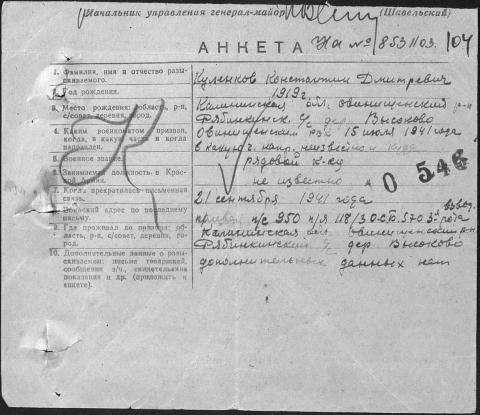 Начальник управления генерал-майор (Шавельский)
АНКЕТА На № 8531103. 104
1. Фамилия, имя и отчество разыскиваемого.
Куленков Константин Дмитревич
2. Год рождения.
1919 г.
3. Место рождения: область, р-н, с/совет, деревня, город.
Калининская обл. Овинищенский р-н
Рябинкинск. с/с дер. Высоково
4. Каким военкоматом призван, когда, в какую часть и когда направлен.
Овинищенский рвк 15 июля 1941 года
в какую ч. напр. неизвестно и куда
5. Военное звание.
рядовой к-ку
6. Занимаемая должность в Красной Армии.
не известно
0 546
7. Когда прекратилась письменная связь.
21 сентября 1941 года
8. Воинский адрес по последнему письму.
п/с 950 п/я 118/3 О.С.Б. 570 3я рота взвод.
9. Где проживал до призыва: область, р-н, с/совет, деревня, город.
Калининская обл. Овинищенский р-н
Рябинкинский с/с дер. Высоково
10. Дополнительные данные о разыскиваемом: письма товарищей, сообщения в/ч, свидетельские показания и др. (приложить к анкете).
дополнительных данных нет